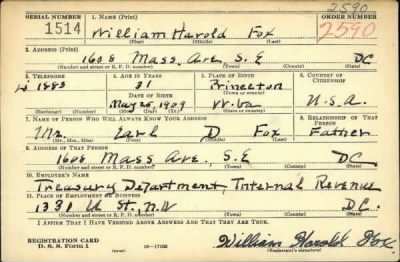 2590
SERIAL NUMBER 1. NAME (Print) ORDER NUMBER
1514 William Harold Fox 2590
(First) (Middle) (Last)
2. ADDRESS (Print)
1608 Mass. Ave. S.E. DC
(Number and street or R. F. D. number) (Town) (County) (State)
3. TELEPHONE 4. AGE IN YEARS 5. PLACE OF BIRTH 6. COUNTRY OF CITIZENSHIP
1583 31 Princeton
DATE OF BIRTH (Town or county)
May 25, 1909 W.Va. U.S.A.
(Exchange) (Number) (Mo.) (Day) (Yr.) (State or country)
7. NAME OF PERSON WHO WILL ALWAYS KNOW YOUR ADDRESS 8. RELATIONSHIP OF THAT PERSON
Mr. Earl D Fox Father
(Mr., Mrs., Miss) (First) (Middle) (Last)
9. ADDRESS OF THAT PERSON
1608 Mass Ave. S.E. DC
(Number and street or R. F. D. number) (Town) (County) (State)
10. EMPLOYER'S NAME
Treasury Department Internal Revenue
11. PLACE OF EMPLOYMENT OR BUSINESS
1331 St., N.W D.C.
(Number and street or R. F. D. number) (Town) (County) (State)
I AFFIRM THAT I HAVE VERIFIED ABOVE ANSWERS AND THAT THEY ARE TRUE.
REGISTRATION CARD
D. S. S. Form 1 William Harold Fox
(over) (Registrant's signature)